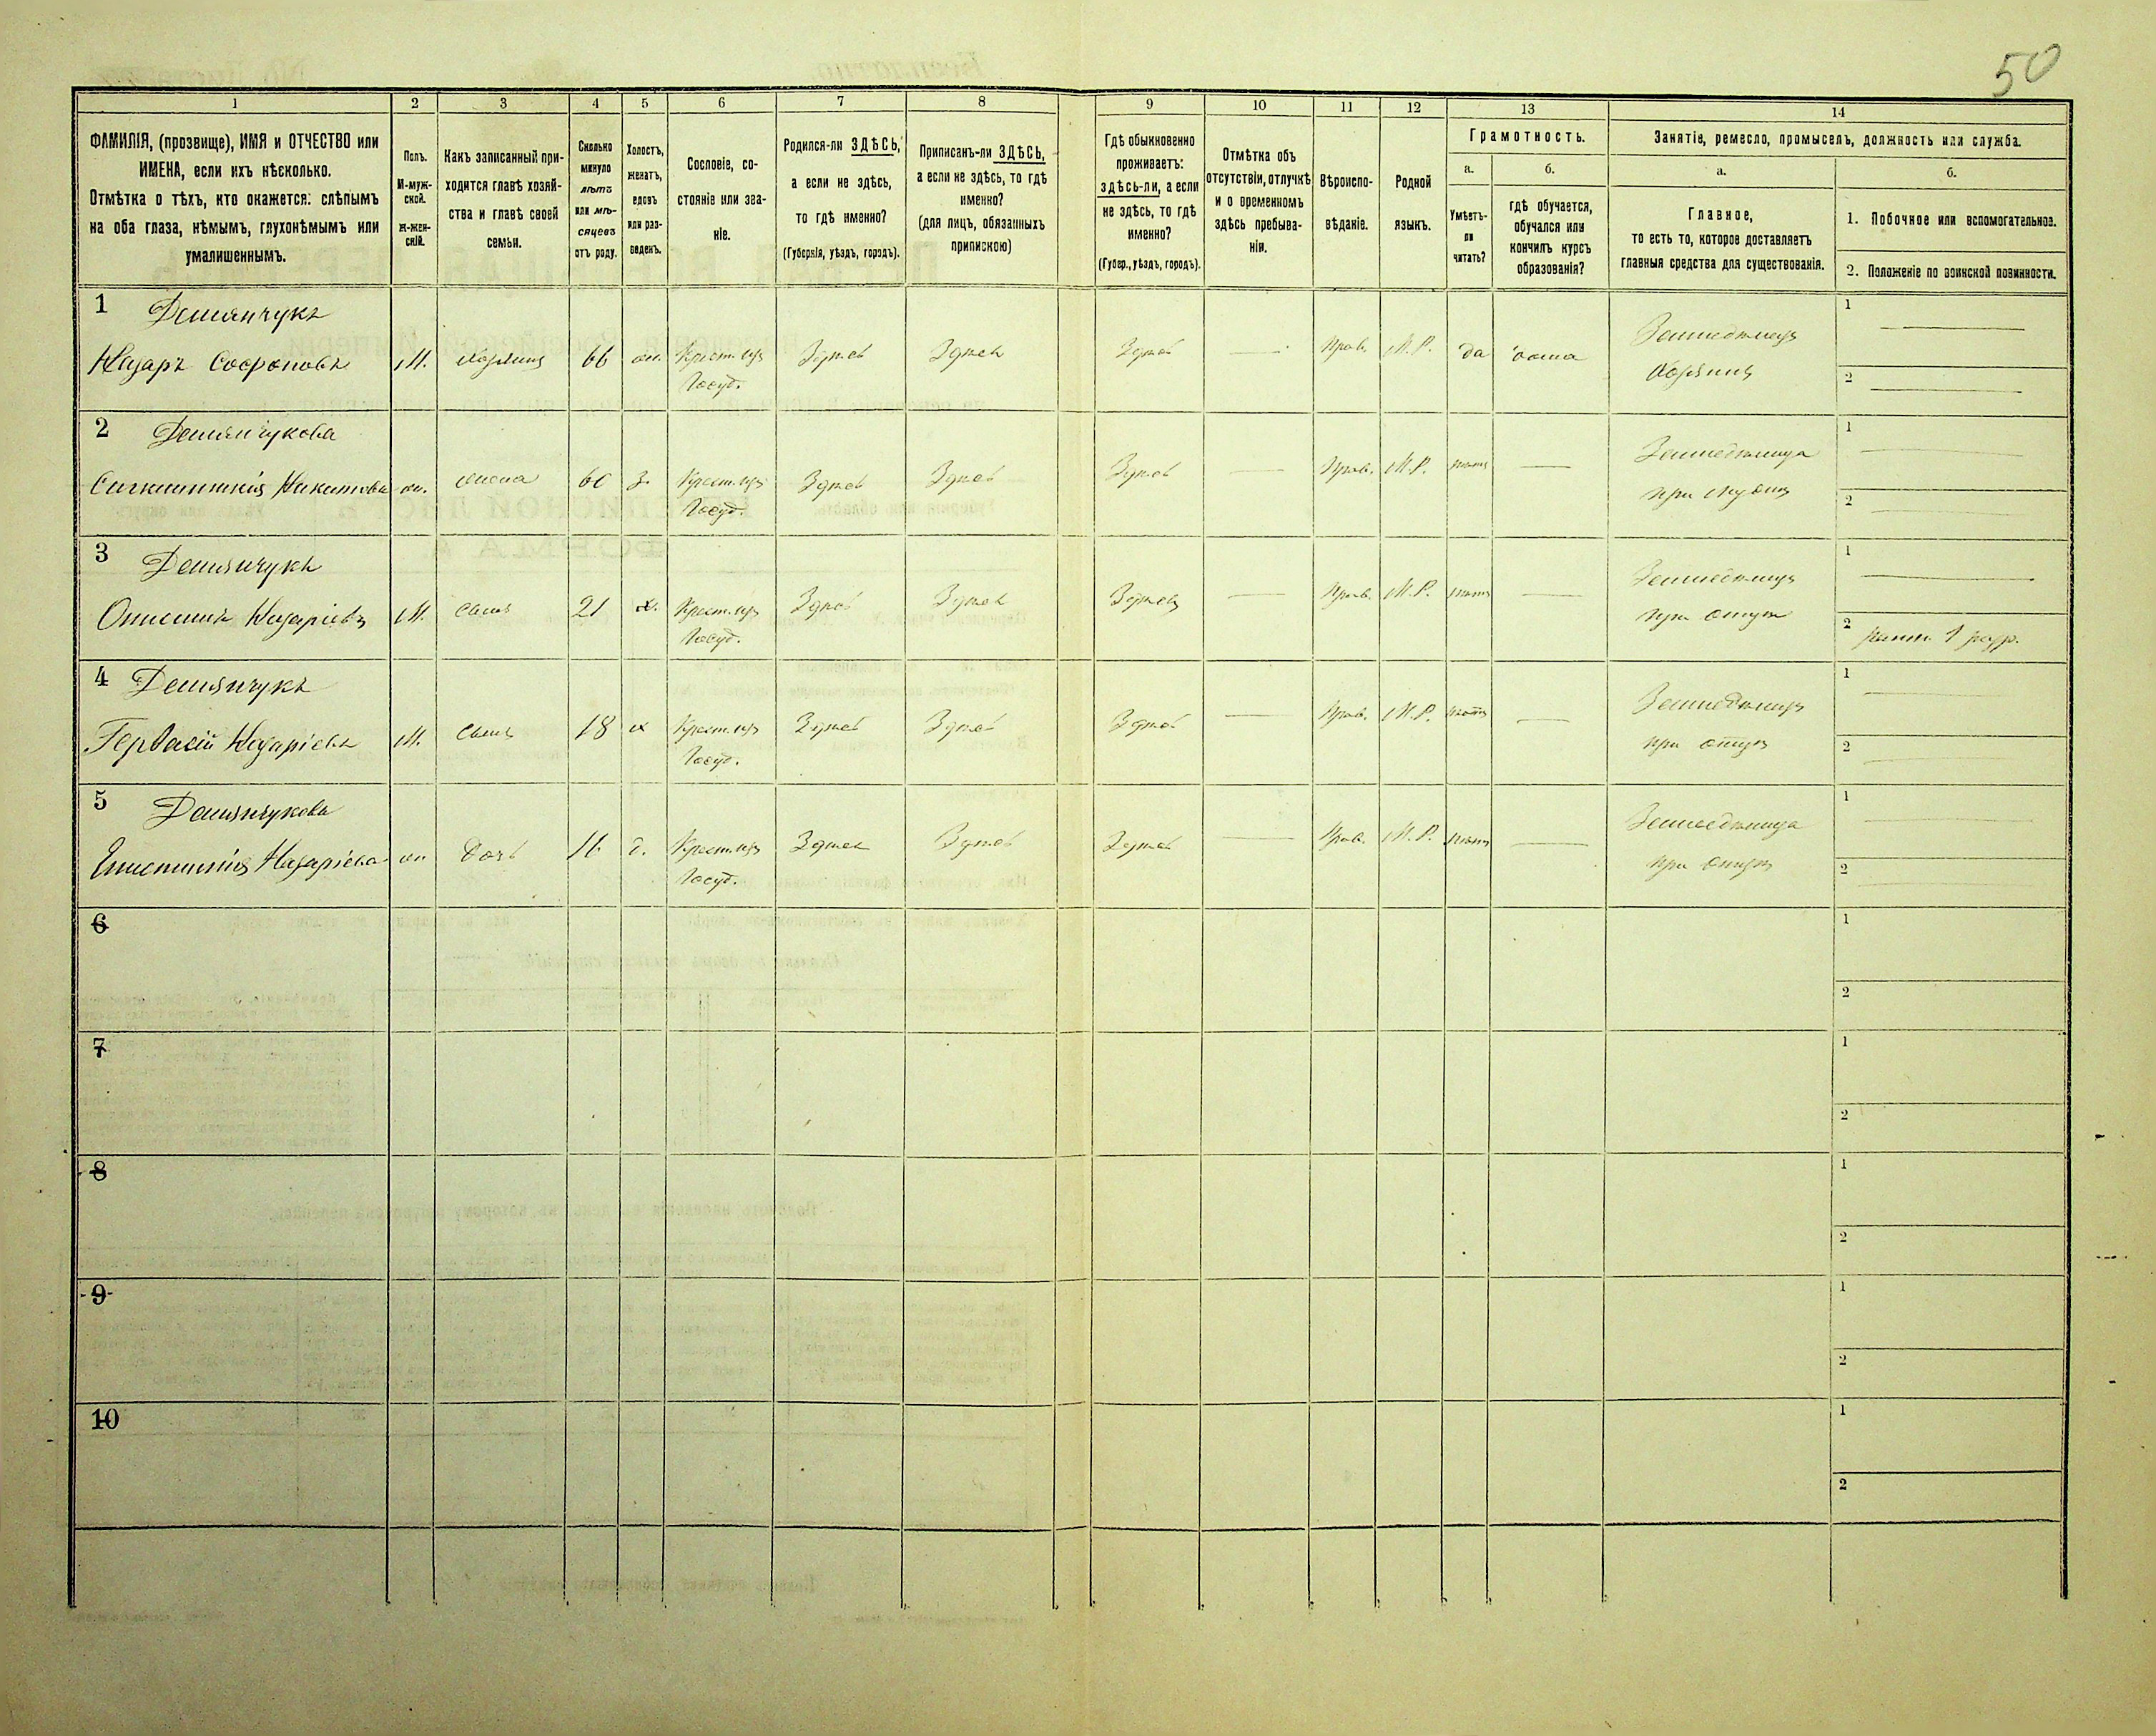 50
1 2 3 4 5 6 7 8 9 10 11 12 13 14
ФАМИЛІЯ, (прозвище), ИМЯ и ОТЧЕСТВО или
ИМЕНА, если ихъ нѣсколько.
Отмѣтка о тѣхъ, кто окажется: слѣпымъ
на оба глаза, нѣмымъ, глухонѣмымъ или
умалишеннымъ.
Полъ.
М-муж-
ской.
Ж-жен-
скій.
Какъ записанный при-
ходится главѣ хозяй-
ства и главѣ своей
семьи.
Сколько
минуло
лѣтъ
или мѣ-
сяцевъ
отъ роду.
Холостъ,
женатъ,
вдовъ
или раз-
веденъ.
Сословіе, со-
стояніе или зва-
ніе.
Родился-ли ЗДѢСЬ,
а если не здѣсь,
то гдѣ именно?
(Губернія, уѣздъ, городъ).
Приписанъ-ли ЗДѢСЬ,
а если не здѣсь, то гдѣ
именно?
(для лицъ, обязанныхъ
припискою)
Гдѣ обыкновенно
проживаетъ:
здѣсь-ли, а если
не здѣсь, то гдѣ
именно?
(Губер., уѣздъ, городъ).
Отмѣтка объ
отсутствіи, отлучкѣ
и о временномъ
здѣсь пребыва-
ніи.
Вѣроиспо-
вѣданіе.
Родной
языкъ.
Грамотность.
а.
Умѣетъ-
ли
читать?
б.
гдѣ обучается,
обучался или
кончилъ курсъ
образованія?
Занятіе, ремесло, промыселъ, должность или служба.
а.
Главное,
то есть то, которое доставляетъ
главныя средства для существованія.
б.
1. Побочное или вспомогательное.
2. Положеніе по воинской повинности.
1 Демянчукъ
Назаръ Софроновъ М. хозяинъ 66 ж. Крест. изъ Здѣсь Здѣсь Здѣсь — Прав. М.Р. да Земледѣлецъ
Госуд. Хозяинъ
1
2
2 Демянчукова
Никитова ж. жена 60 з. Крест. изъ Здѣсь Здѣсь Здѣсь — Прав. М.Р. нѣтъ — Земледѣлица
Госуд. при мужѣ
1
2
3 Демянчукъ
Онисимъ Назаріевъ М. сынъ 21 х. Крест. изъ Здѣсь Здѣсь Здѣсь — Прав. М.Р. нѣтъ — Земледѣлецъ
Госуд. при отцѣ
1
2 ратн. 1 разр.
4 Демянчукъ
Гервасій Назаріевъ М. сынъ 18 х Крест. изъ Здѣсь Здѣсь Здѣсь — Прав. М.Р. нѣтъ — Земледѣлецъ
Госуд. при отцѣ
1
2
5 Демянчукова
Епистимія Назаріева ж дочь 16 д. Крест. изъ Здѣсь Здѣсь Здѣсь — Прав. М.Р. нѣтъ — Земледѣлица
Госуд. при отцѣ
1
2
6
1
2
7
1
2
8
1
2
9
1
2
10
1
2